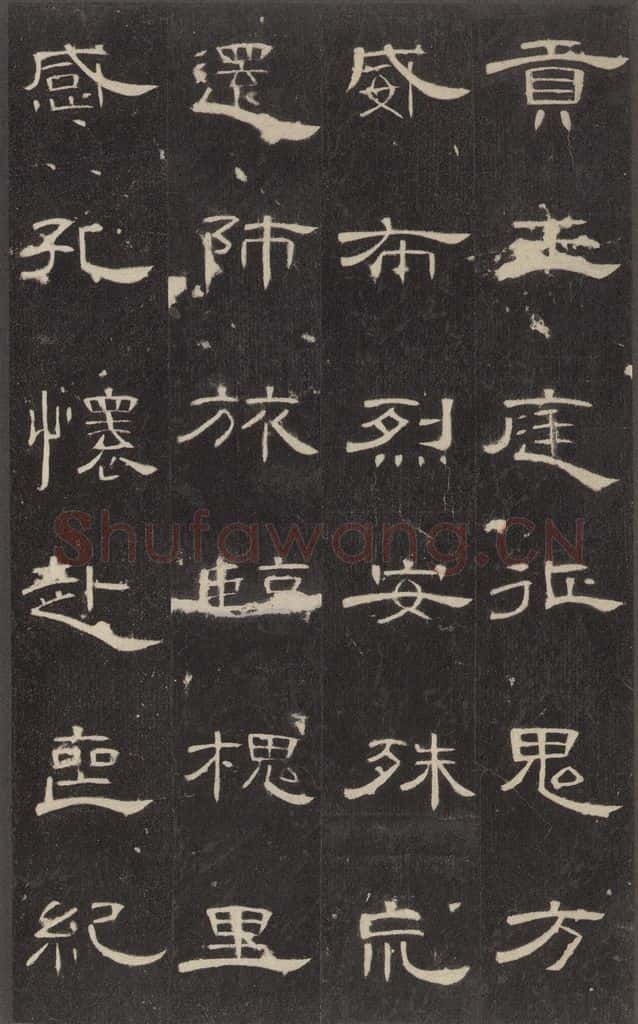 貢王庭征鬼方
威布烈安殊巟
還師旅臨槐里
感孔懷赴喪紀
Shufawang.CN